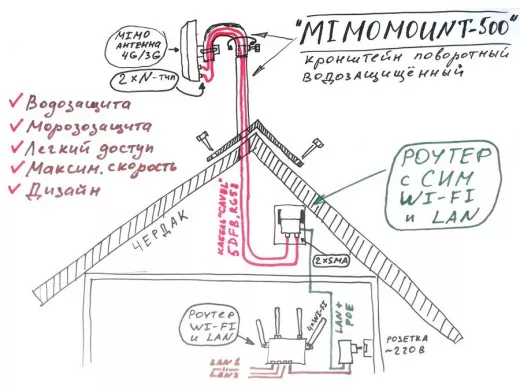 "MIMOMOUNT-500"
кронштейн поворотный
водозащищённый
MIMO
АНТЕННА
4G/3G
2×N-ТИП
Водозащита
Морозозащита
Лёгкий доступ
Максим. скорость
Дизайн
РОУТЕР
С СИМ
WI-FI
и LAN
ЧЕРДАК
КАБЕЛЬ "CAVEL"
5DFB, RG58
2×SMA
LAN +
POE
РОУТЕР
WI-FI
и LAN
4×WI-FI
LAN 1
LAN 2
РОЗЕТКА
~220В